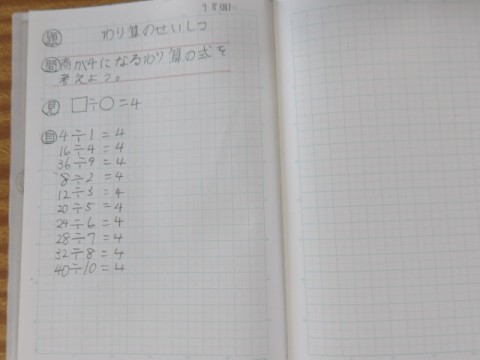 9 8 (月)
題 わり算のせいしつ
問 商が4になるわり算の式を
考えよう。
見 □÷○=4
自 4÷1=4
16÷4=4
36÷9=4
8÷2=4
12÷3=4
20÷5=4
24÷6=4
28÷7=4
32÷8=4
40÷10=4